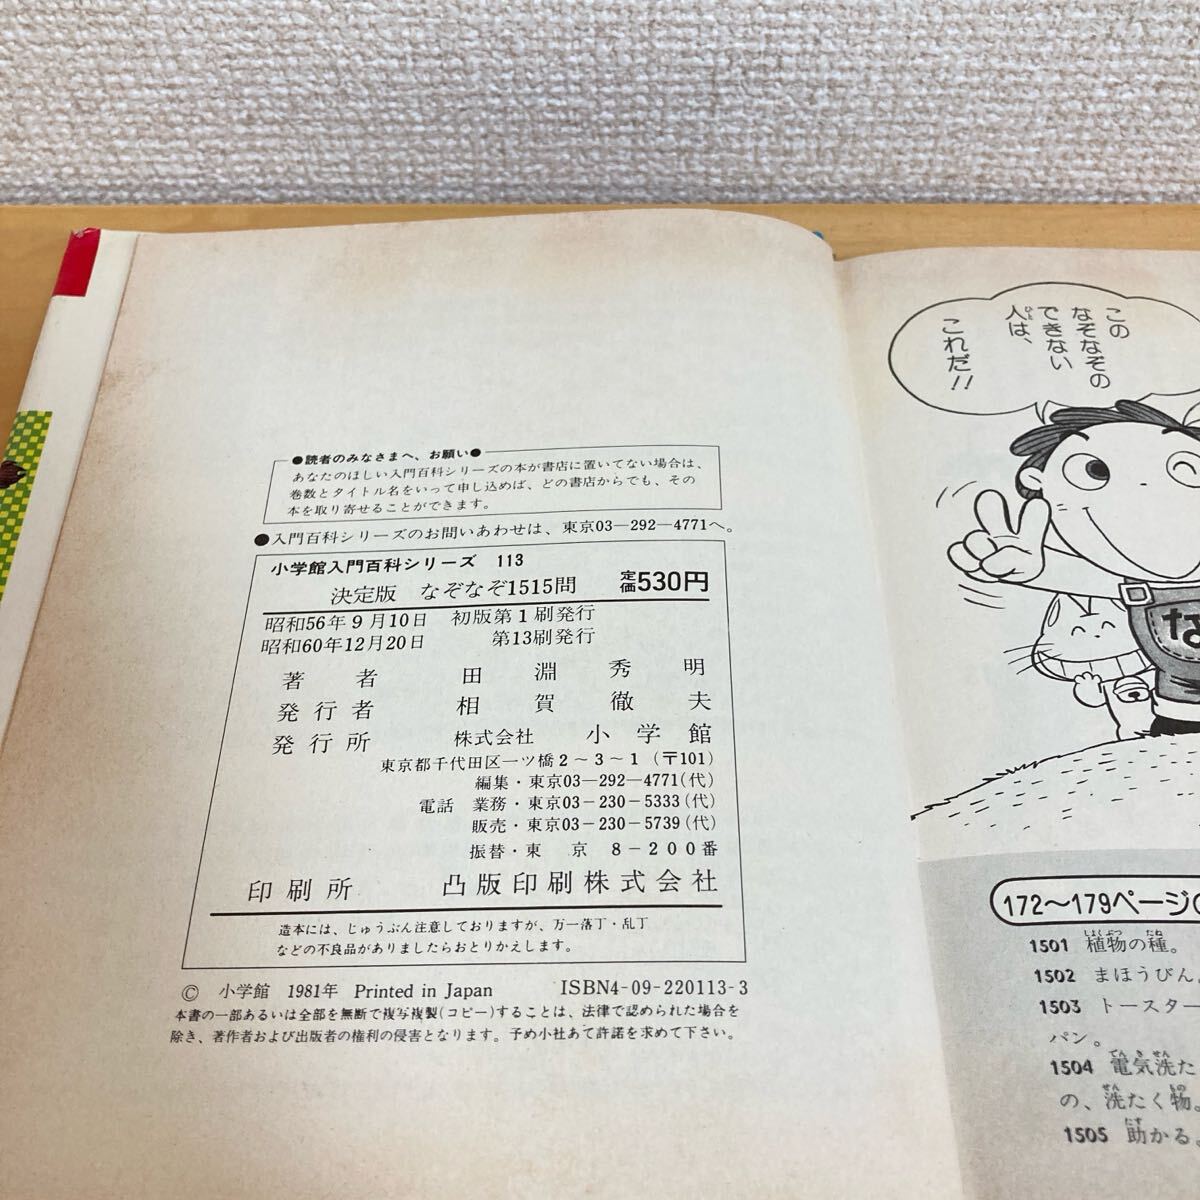 ●読者のみなさまへ、お願い●
あなたのほしい入門百科シリーズの本が書店に置いてない場合は、
巻数とタイトル名をいって申し込めば、どの書店からでも、その
本を取り寄せることができます。
●入門百科シリーズのお問いあわせは、東京03―292―4771へ。
小学館入門百科シリーズ 113
決定版 なぞなぞ1515問 定価530円
昭和56年9月10日 初版第1刷発行
昭和60年12月20日 第13刷発行
著者 田淵秀明
発行者 相賀徹夫
発行所 株式会社 小学館
東京都千代田区一ツ橋2~3~1(〒101)
編集・東京03-292-4771(代)
電話 業務・東京03-230-5333(代)
販売・東京03-230-5739(代)
振替・東京 8-200番
印刷所 凸版印刷株式会社
造本には、じゅうぶん注意しておりますが、万一落丁・乱丁
などの不良品がありましたらおとりかえします。
© 小学館 1981年 Printed in Japan ISBN4-09-220113-3
本書の一部あるいは全部を無断で複写複製(コピー)することは、法律で認められた場合を
除き、著作者および出版者の権利の侵害となります。予め小社あて許諾を求めて下さい。
この
なぞなぞの
できない
人は、
これだ!!
な
172〜179ページ
1501 植物の種。
1502 まほうびん。
1503 トースター
パン。
1504 電気洗た
の、洗たく物。
1505 助かる。